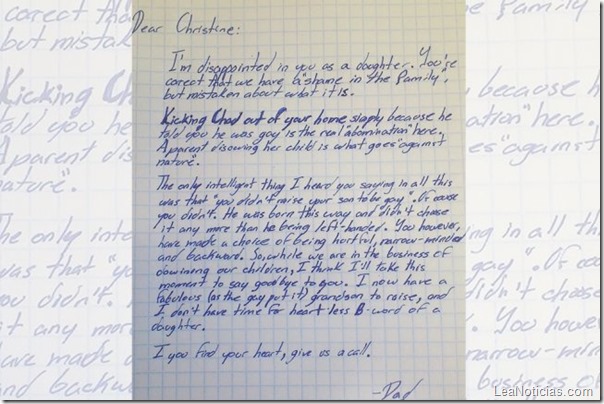 Dear Christine:
I'm disappointed in you as a daughter. You're
corect that we have a "shame in the family",
but mistaken about what it is.
Kicking Chad out of your home simply because he
told you he was gay is the real "abomination" here.
Apparent disowing her child is what goes "against
nature".
The only intelligrnt thing I heard you saying in all this
was that "you didn't raise your son to be gay". Of couse
you didn't. He was born this way and didn't choose
it any more than he being left-handed. You however,
have made a choice of being hurtful, narrow-minded
and backward. So, while we are in the business of
dowining our children, I think I'll take this
moment to say goodbye to you. I now have a
fabulous (as the gay put it) grandson to raise, and
I don't have time for heart less B-word of a
daughter.
I you find your heart, give us a call.
-Dad
LeaNoticias.com